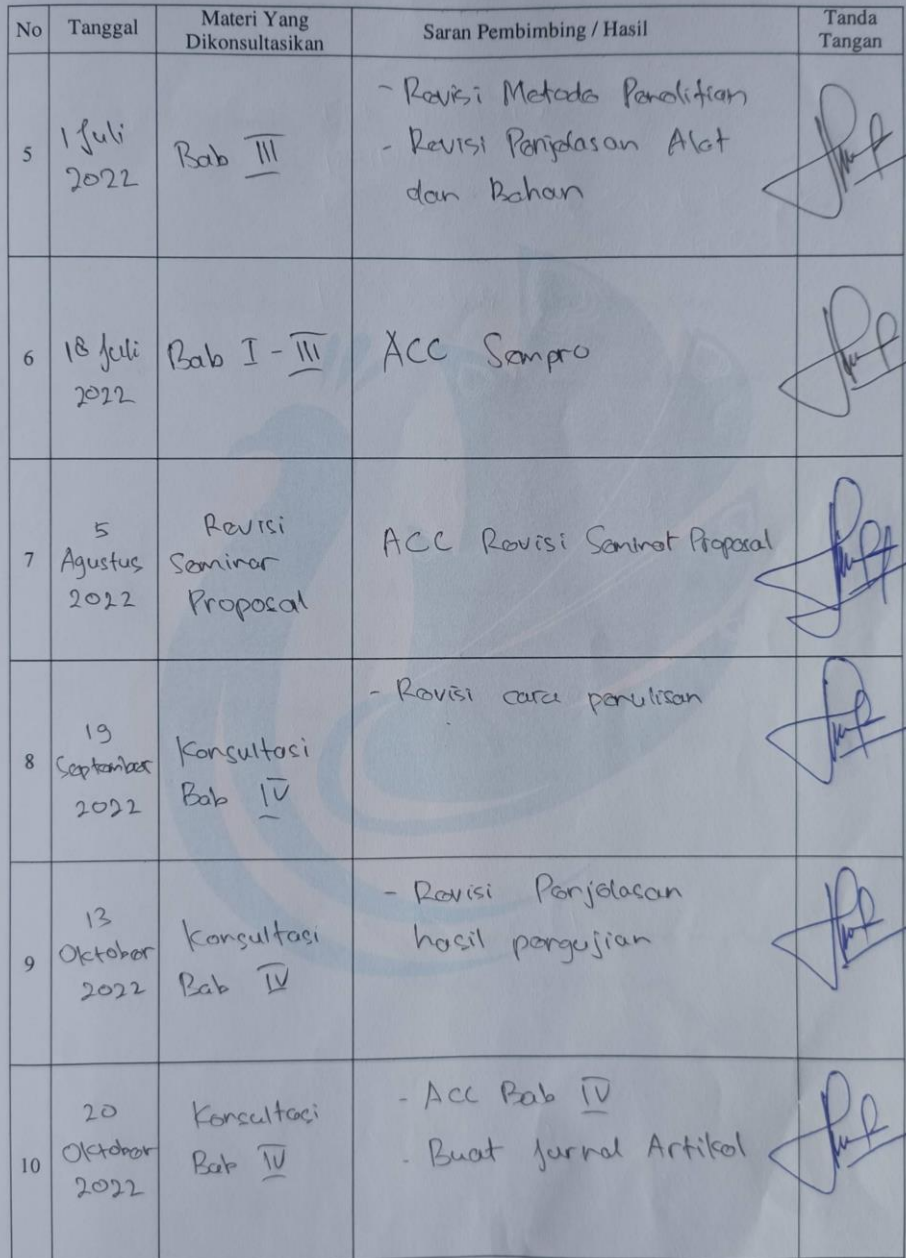 No Tanggal Materi Yang Dikonsultasikan Saran Pembimbing / Hasil Tanda Tangan
5
1 Juli
2022
Bab III
- Revisi Metode Penelitian
- Revisi Penjelasan Alat
dan Bahan
6
18 Juli
2022
Bab I - III
ACC Sempro
7
5
Agustus
2022
Revisi
Seminar
Proposal
ACC Revisi Seminar Proposal
8
19
September
2022
Konsultasi
Bab IV
- Revisi cara penulisan
9
13
Oktober
2022
Konsultasi
Bab IV
- Revisi Penjelasan
hasil pengujian
10
20
Oktober
2022
Konsultasi
Bab IV
- Acc Bab IV
- Buat Jurnal Artikel